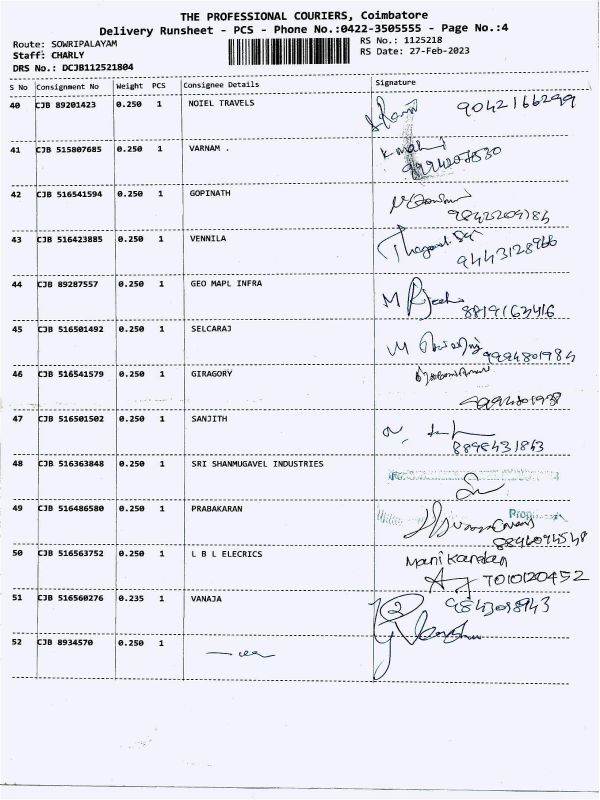 THE PROFESSIONAL COURIERS, Coimbatore
Delivery Runsheet - PCS - Phone No.:0422-3505555 - Page No.:4
Route: SOWRIPALAYAM
RS No.: 1125218
Staff: CHARLY
RS Date: 27-Feb-2023
DRS No.: DCJB112521804
S No Consignment No Weight PCS Consignee Details Signature
40 CJB 89201423 0.250 1 NOIEL TRAVELS 9042166299
41 CJB 515807685 0.250 1 VARNAM .
42 CJB 516541594 0.250 1 GOPINATH
43 CJB 516423885 0.250 1 VENNILA 9443128966
44 CJB 89287557 0.250 1 GEO MAPL INFRA M 8819163416
45 CJB 516501492 0.250 1 SELCARAJ M
46 CJB 516541579 0.250 1 GIRAGORY
47 CJB 516501502 0.250 1 SANJITH 8898431843
48 CJB 516363848 0.250 1 SRI SHANMUGAVEL INDUSTRIES
49 CJB 516486580 0.250 1 PRABAKARAN
50 CJB 516563752 0.250 1 L B L ELECRICS Manikandan
7010120452
51 CJB 516560276 0.235 1 VANAJA
52 CJB 8934570 0.250 1